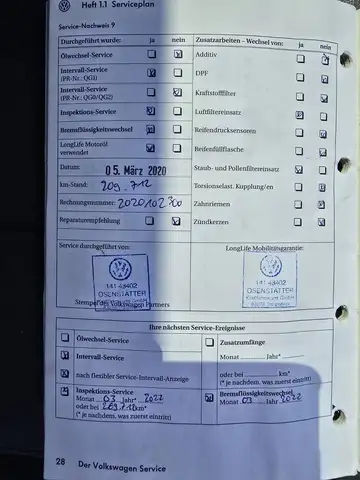 Heft 1.1 Serviceplan
Service-Nachweis 9
Durchgeführt wurde: ja nein
Ölwechsel-Service
Intervall-Service
(PR-Nr.: QG1)
Intervall-Service
(PR-Nr.: QG0/QG2)
Inspektions-Service
Bremsflüssigkeitswechsel
LongLife Motoröl
verwendet
Datum: 05. März 2020
km-Stand: 209.712
Rechnungsnummer: 2020102300
Reparaturempfehlung
Zusatzarbeiten – Wechsel von: ja nein
Additiv
DPF
Kraftstofffilter
Luftfiltereinsatz
Reifendrucksensoren
Reifenfüllflasche
Staub- und Pollenfiltereinsatz
Torsionselast. Kupplung/en
Zahnriemen
Zündkerzen
Service durchgeführt von:
141 48402
OSENSTÄTTER
Stempel des Volkswagen Partners
LongLife Mobilitätsgarantie:
141 48402
OSENSTÄTTER
Ihre nächsten Service-Ereignisse
Ölwechsel-Service
Intervall-Service
nach flexibler Service-Intervall-Anzeige
Inspektions-Service
Monat 03 Jahr* 2022
oder bei km*
(* je nachdem, was zuerst eintritt)
Zusatzumfänge
Monat Jahr*
oder bei km*
(* je nachdem, was zuerst eintritt)
Bremsflüssigkeitswechsel
Monat 03 Jahr 2022
28 Der Volkswagen Service